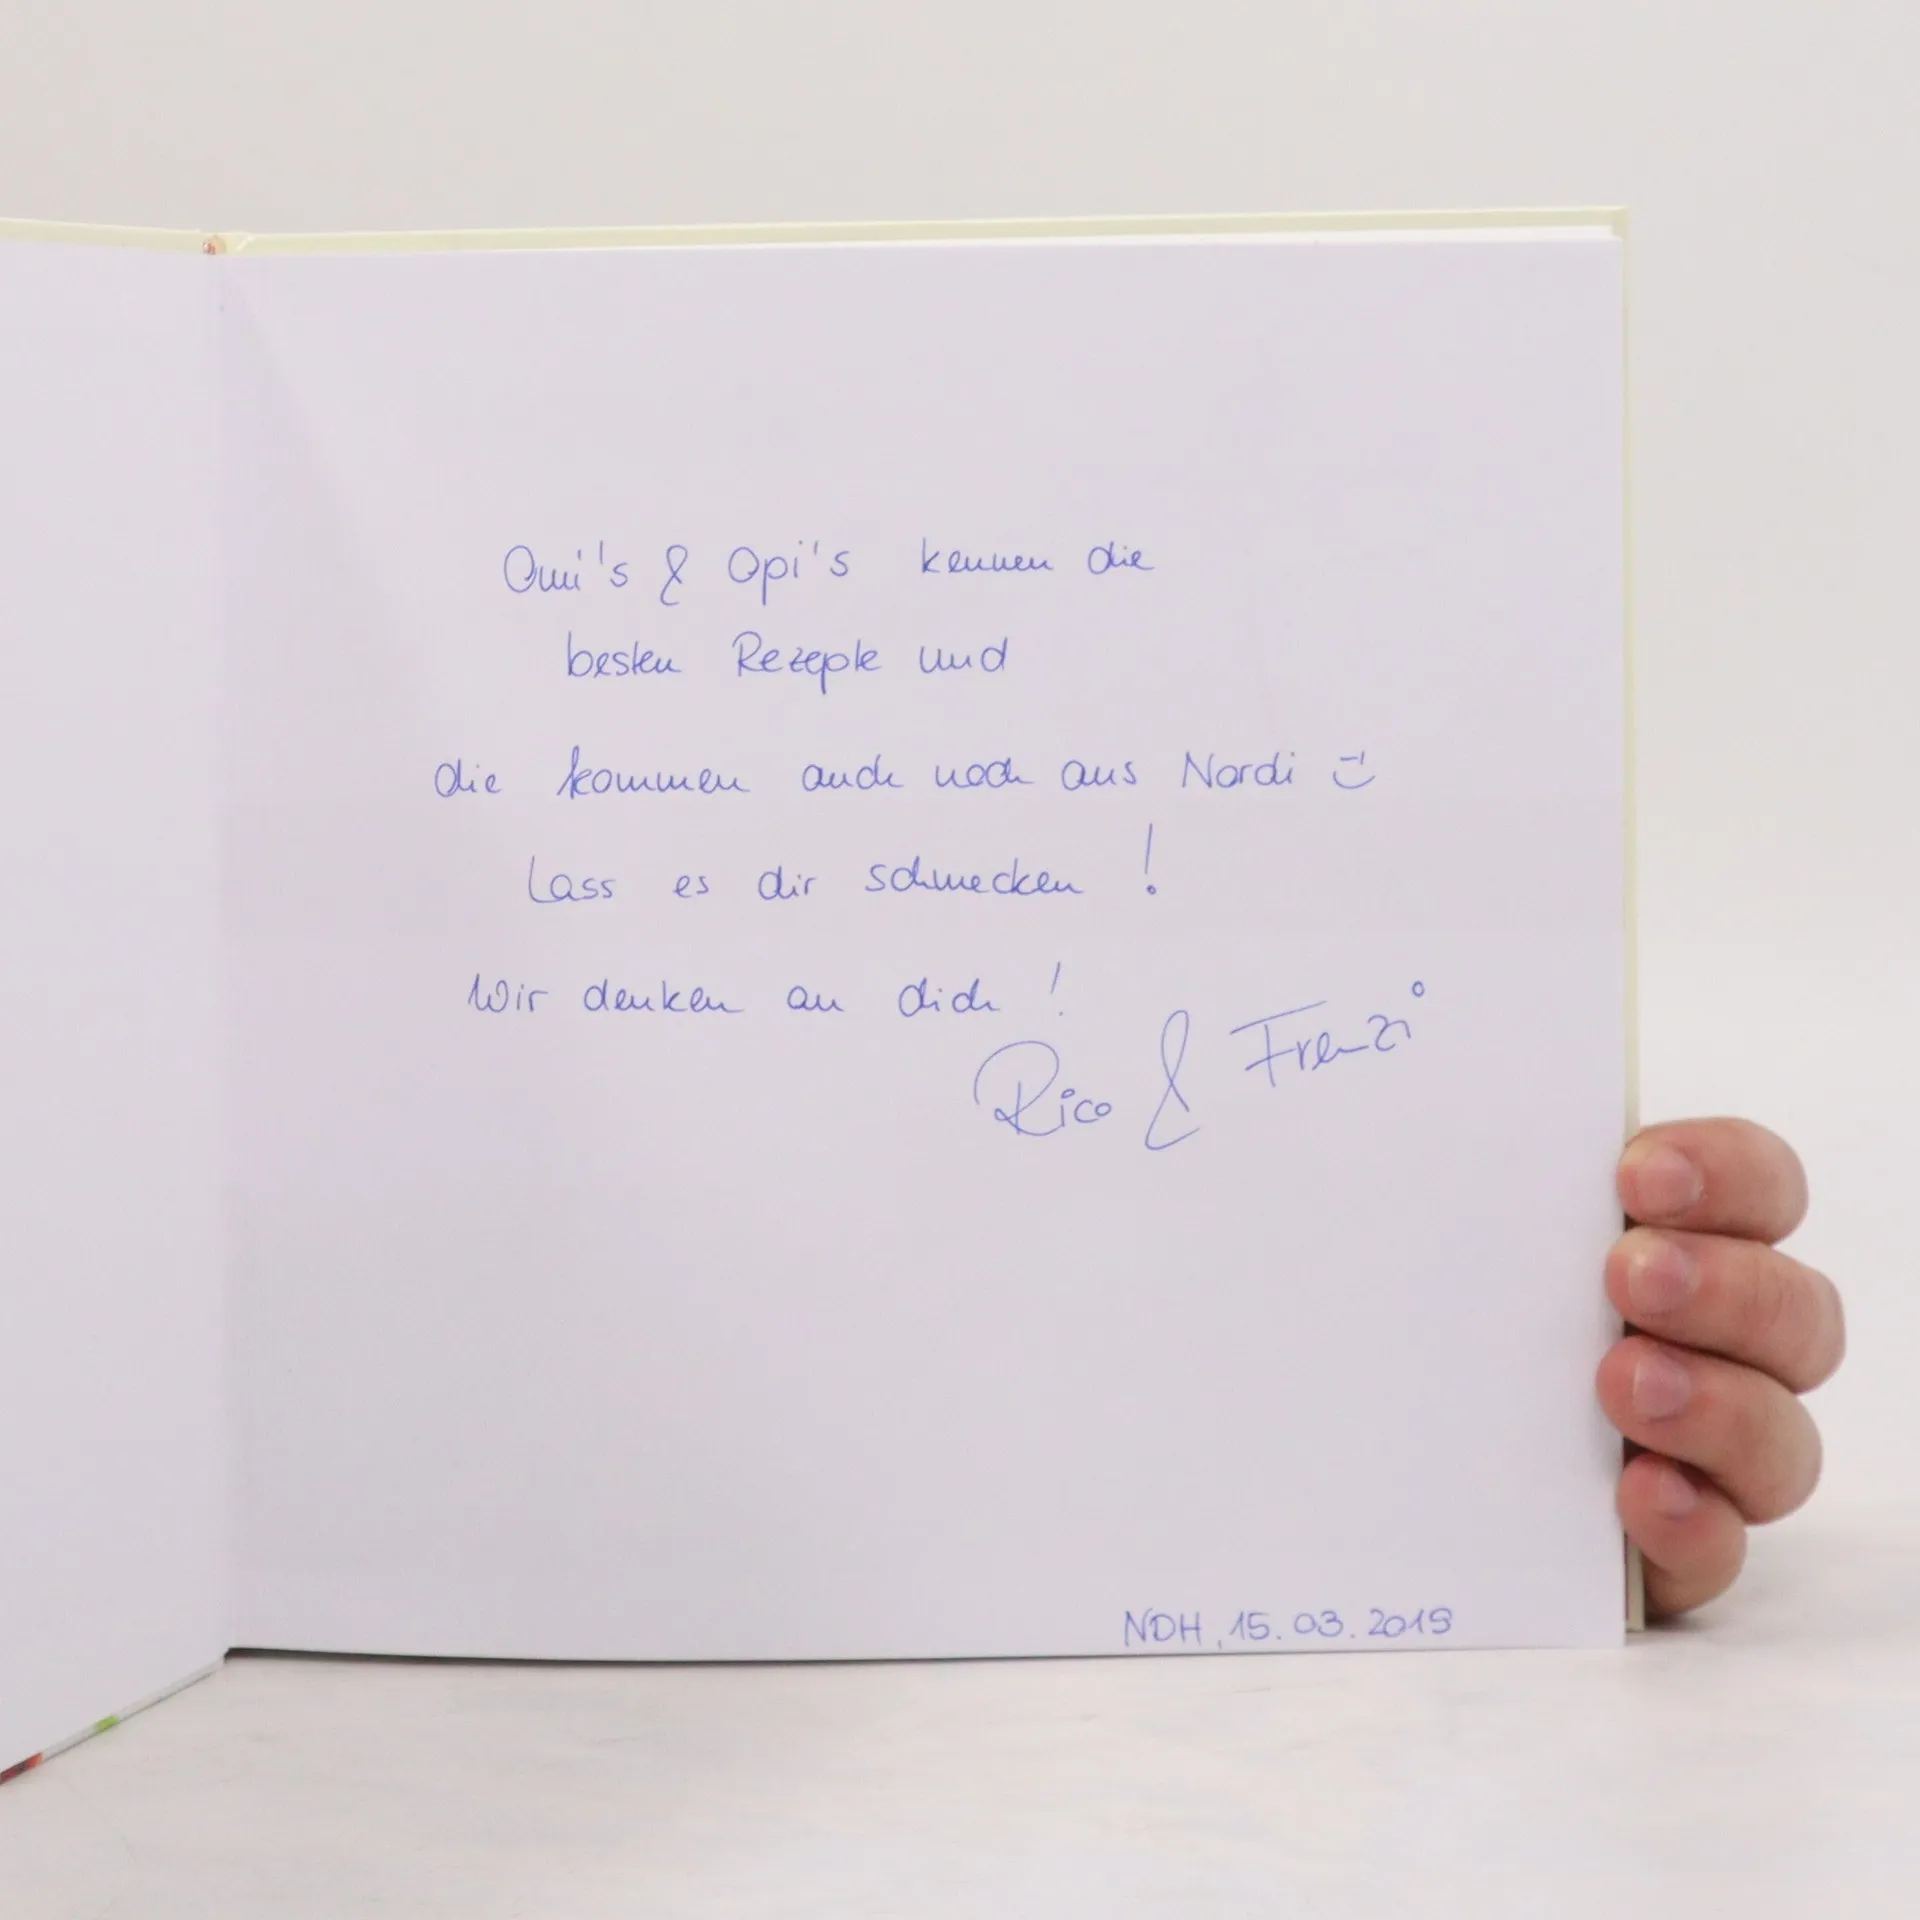 Omi's & Opi's kennen die
besten Rezepte und
die kommen auch noch aus Nordi =)
Lass es dir schmecken !
Wir denken an dich !
Rico & Franzi
NDH, 15.03.2019